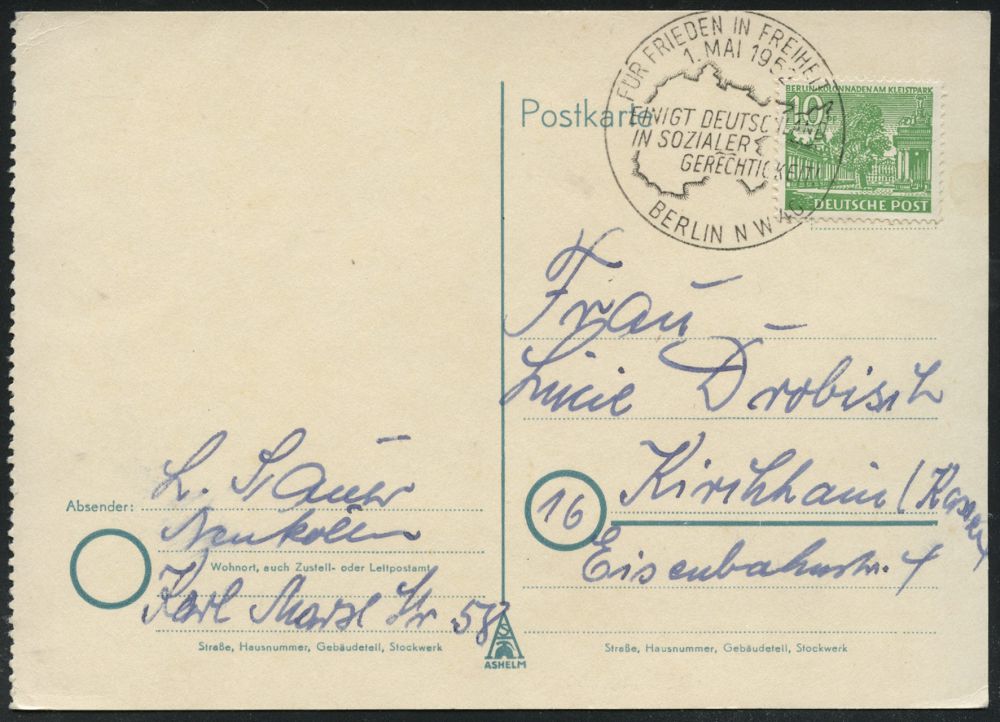 FÜR FRIEDEN IN FREIHEIT
1. MAI 1952
EINIGT DEUTSCHLAND
IN SOZIALER
GERECHTIGKEIT!
BERLIN NW 40
BERLIN-KOLONNADEN AM KLEISTPARK
10
DEUTSCHE POST
Postkarte
Frau
Lucie Drobisch
16
Kirchhain
Eisenbahnstr.
Straße, Hausnummer, Gebäudeteil, Stockwerk
Absender: L.
Neukölln
Wohnort, auch Zustell- oder Leitpostamt
Karl Marx Str 58
Straße, Hausnummer, Gebäudeteil, Stockwerk
ASHELM